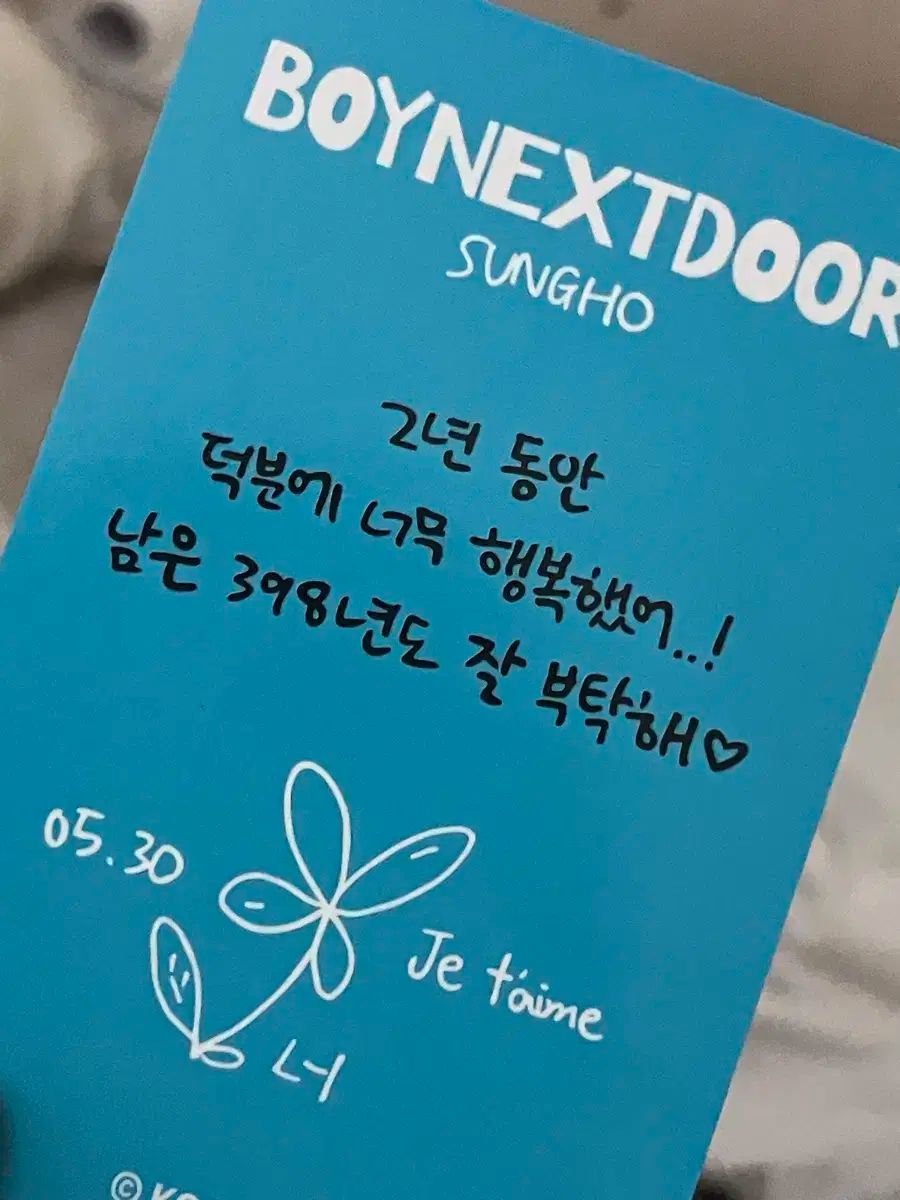 BOYNEXTDOOR
SUNGHO
2년 동안
덕분에 너무 행복했어..!
남은 398년도 잘 부탁해♡
05.30
Je t'aime
너
©